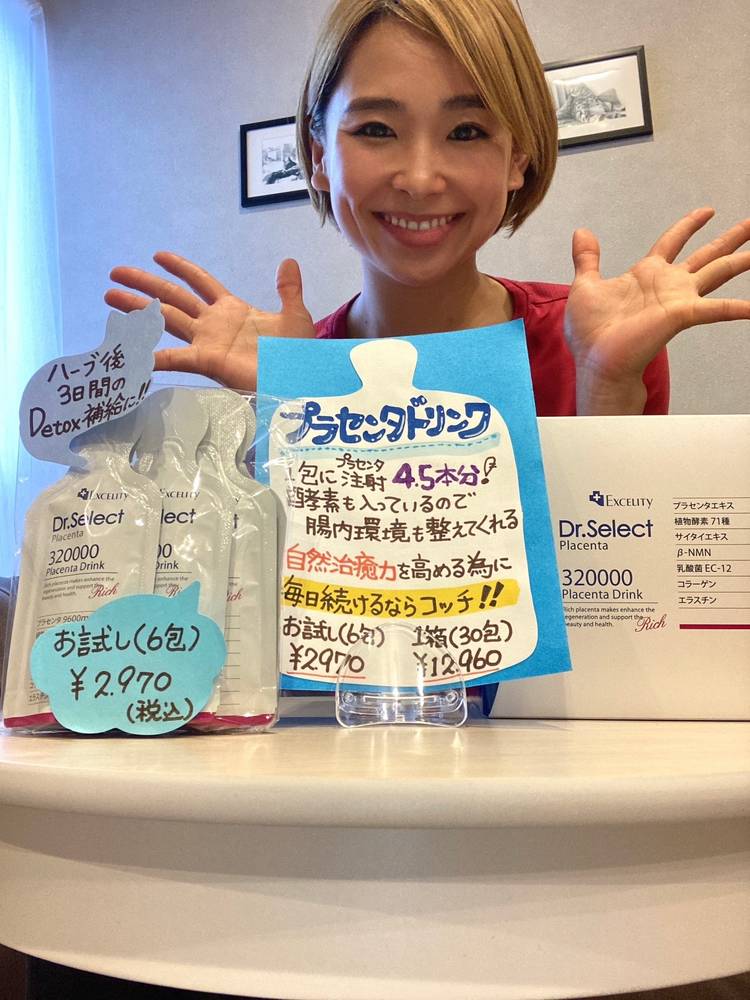 ハーブ後
3日間の
Detox補給に!!
EXCELITY
Dr.Select
Placenta
320000
Placenta Drink
Rich placenta makes enhance the
regeneration and support the
beauty and health.
Rich
プラセンタ 9600m
お試し(6包)
¥2.970
(税込)
プラセンタドリンク
1包に注射4.5本分!
プラセンタ
酵素も入っているので
腸内環境も整えてくれる
自然治癒力を高める為に
毎日続けるならコッチ!!
お試し(6包) 1箱(30包)
¥2970 ¥12.960
EXCELITY
Dr.Select
Placenta
320000
Placenta Drink
Rich placenta makes enhance the
regeneration and support the
beauty and health.
Rich
プラセンタエキス
植物酵素 71種
サイタイエキス
β-NMN
乳酸菌 EC-12
コラーゲン
エラスチン